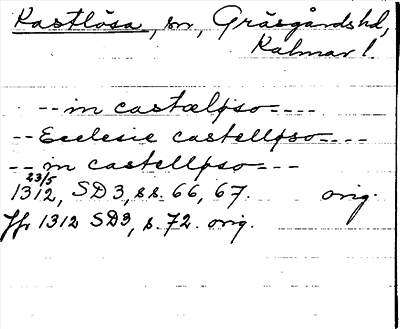 Kastlösa, sn, Gräsgårds hd,
Kalmar l.
-- in castælpso ----
-- Ecclesie castellpso ----
-- in castellpso ---
23/5
1312, SD3, ss. 66, 67. orig.
Jfr 1312 SD3, s. 72. orig.